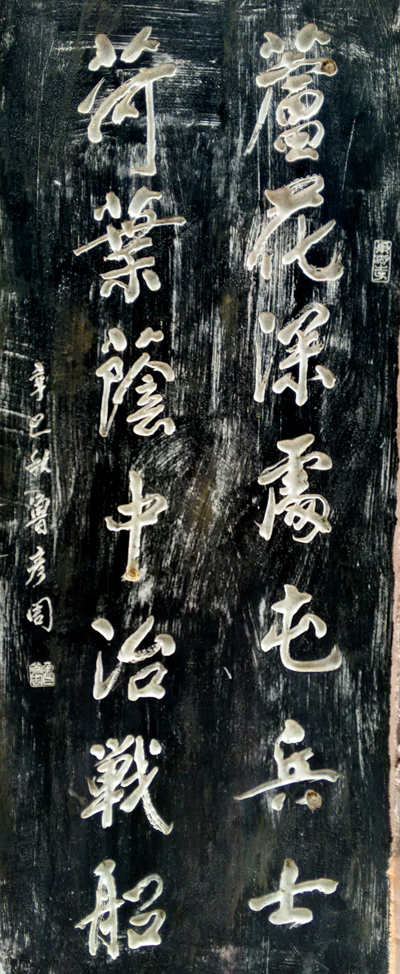 蘆花深處屯兵士
荷葉蔭中治戰船
辛巳秋魯彥同